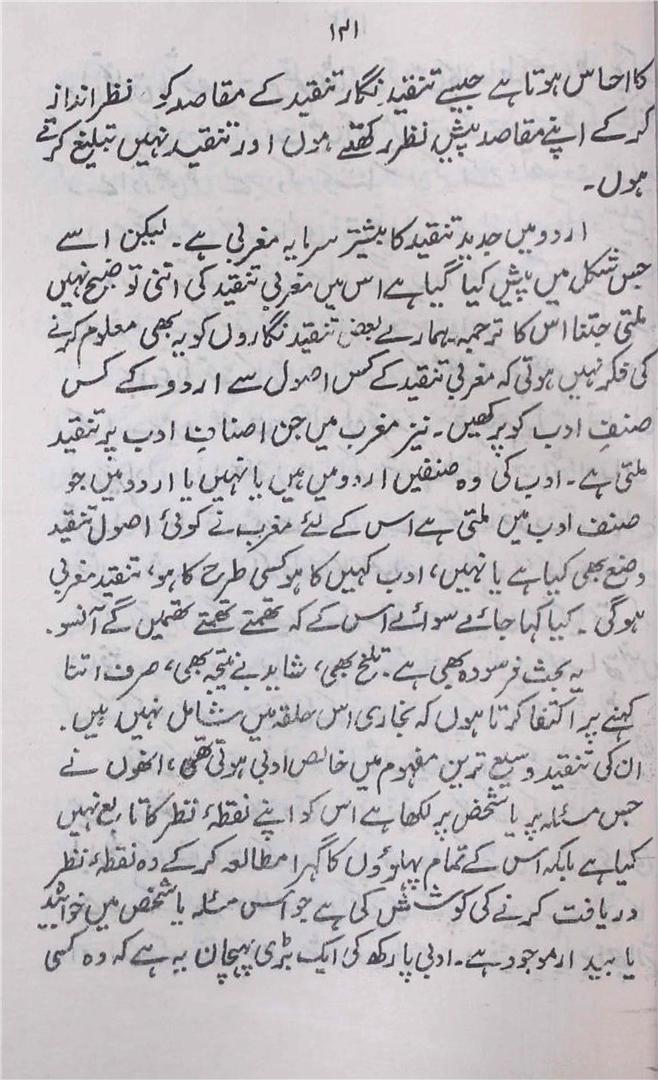 ۱۳۱
کا احساس ہوتا ہے جیسے تنقید نگار تنقید کے مقاصد کو نظر انداز
کر کے اپنے مقاصد پیشِ نظر رکھتے ہوں اور تنقید نہیں تبلیغ کرتے
ہوں۔
اردو میں جدید تنقید کا بیشتر سرمایہ مغربی ہے۔ لیکن اسے
جس شکل میں پیش کیا گیا ہے اس میں مغربی تنقید کی اتنی توضیح نہیں
ملتی جتنا اس کا ترجمہ۔ ہمارے بعض تنقید نگاروں کو یہ بھی معلوم کرنے
کی فکر نہیں ہوتی کہ مغربی تنقید کے کس اصول سے اردو کے کس
صنفِ ادب کو پرکھیں۔ نیز مغرب میں جن اصنافِ ادب پر تنقید
ملتی ہے۔ ادب کی وہ صنفیں اردو میں ہیں یا نہیں یا اردو میں جو
صنف ادب میں ملتی ہے اس کے لئے مغرب نے کوئی اصول تنقید
وضع بھی کیا ہے یا نہیں، ادب کہیں کا ہو کسی طرح کا ہو، تنقید مغربی
ہوگی۔ کیا کہا جائے سوائے اس کے کہ تھمتے تھمتے تھمیں گے آنسو۔
یہ بحث فرسودہ بھی ہے۔ تلخ بھی، شاید بے نتیجہ بھی، صرف اتنا
کہنے پر اکتفا کرتا ہوں کہ بخاری اس حلقہ میں شامل نہیں ہیں۔
ان کی تنقید وسیع ترین مفہوم میں خالص ادبی ہوتی تھی، انھوں نے
جس مسئلہ پر یا شخص پر لکھا ہے اس کو اپنے نقطۂ نظر کا تابع نہیں
کیا ہے بلکہ اس کے تمام پہلوؤں کا گہرا مطالعہ کر کے وہ نقطۂ نظر
دریافت کرنے کی کوشش کی ہے جو اس مسئلہ یا شخص میں خوابیدہ
یا بیدار موجود ہے۔ ادبی پارکھ کی ایک بڑی پہچان یہ ہے کہ وہ کسی